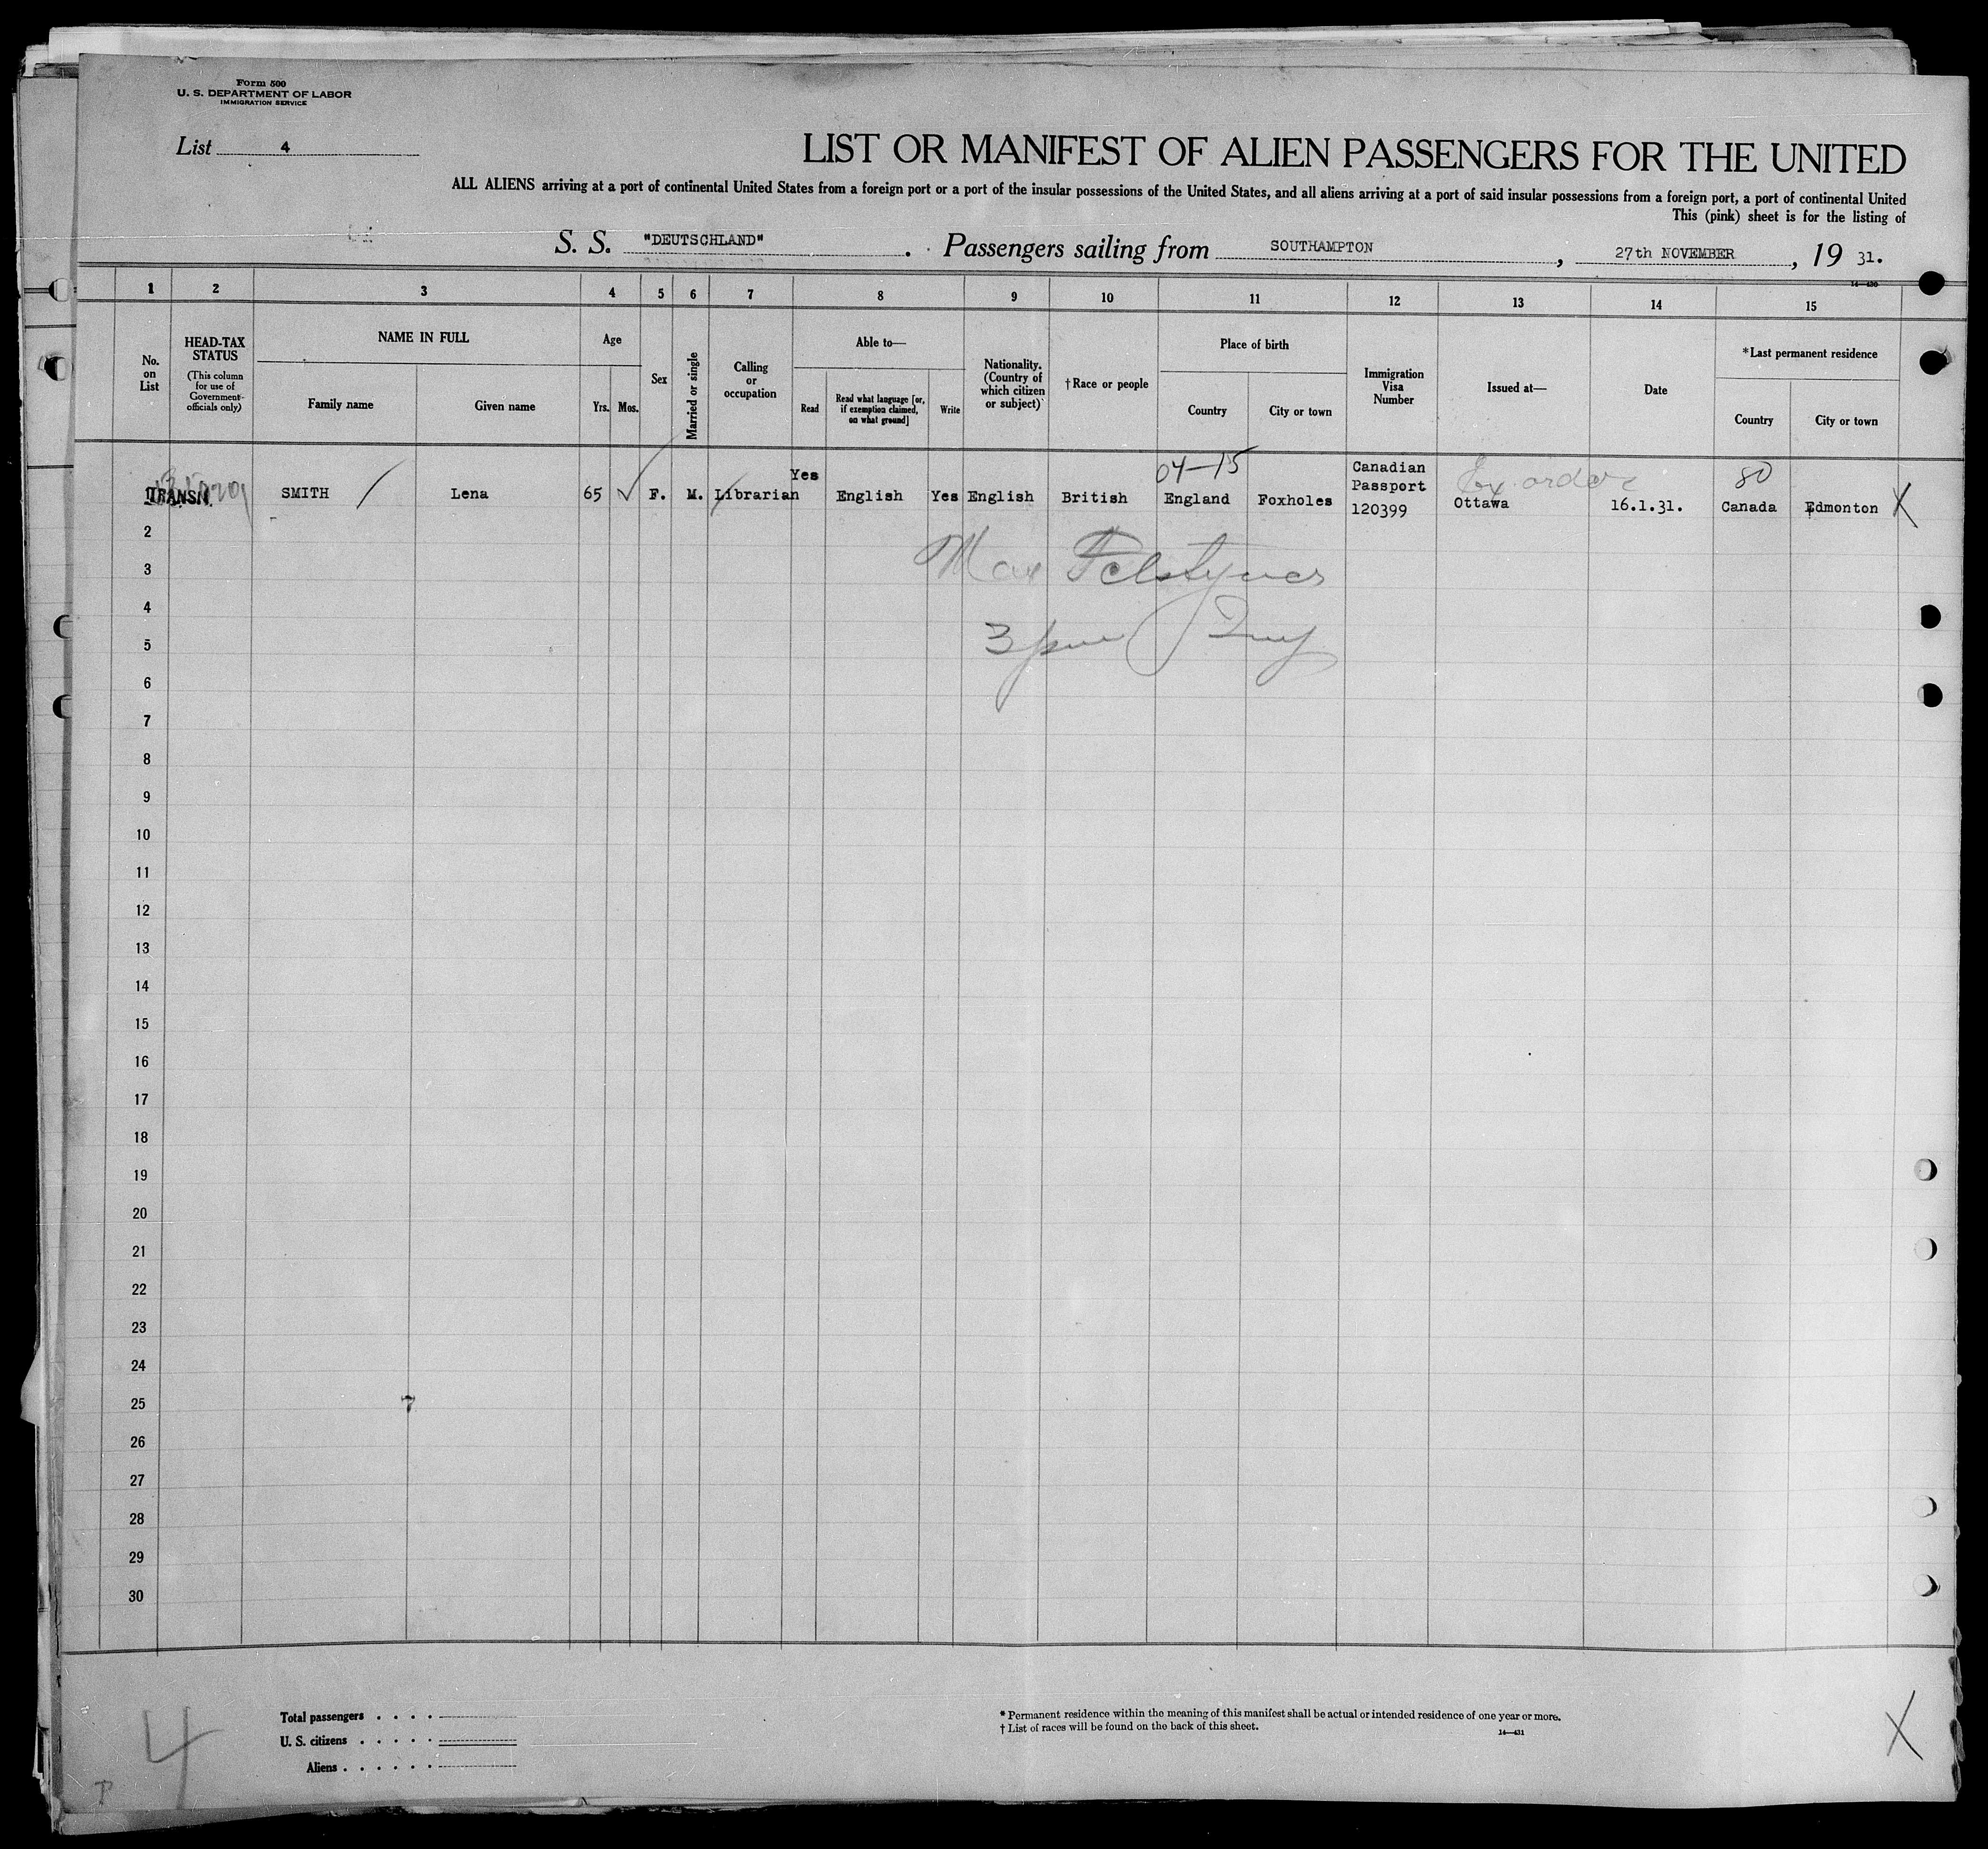 Form 500
U. S. DEPARTMENT OF LABOR
IMMIGRATION SERVICE
List 4
LIST OR MANIFEST OF ALIEN PASSENGERS FOR THE UNITED
ALL ALIENS arriving at a port of continental United States from a foreign port or a port of the insular possessions of the United States, and all aliens arriving at a port of said insular possessions from a foreign port, a port of continental United
This (pink) sheet is for the listing of
S. S. "DEUTSCHLAND". Passengers sailing from SOUTHAMPTON, 27th NOVEMBER, 19 31.
14—430
1 2 3 4 5 6 7 8 9 10 11 12 13 14 15
No. on List
HEAD-TAX STATUS (This column for use of Government officials only)
NAME IN FULL
Family name Given name
Age
Yrs. Mos.
Sex
Married or single
Calling or occupation
Able to—
Read Read what language [or, if exemption claimed, on what ground] Write
Nationality. (Country of which citizen or subject)
†Race or people
Place of birth
Country City or town
Immigration Visa Number
Issued at—
Date
*Last permanent residence
Country City or town
04—15 80
TRANSIT. SMITH Lena 65 F. M. Librarian Yes English Yes English British England Foxholes Canadian Passport 120399 Ottawa 16.1.31. Canada Edmonton X
2
3
4
5
6
7
8
9
10
11
12
13
14
15
16
17
18
19
20
21
22
23
24
25
26
27
28
29
30
4
Total passengers
U. S. citizens
Aliens
* Permanent residence within the meaning of this manifest shall be actual or intended residence of one year or more.
† List of races will be found on the back of this sheet.
14—431
X